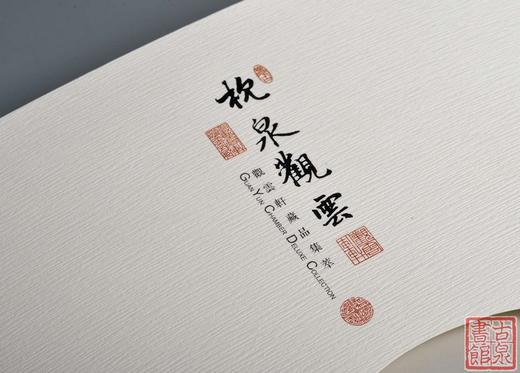 枕泉觀雲
觀雲軒藏品集萃
GUAN YUN CHAMBER DELUXE COLLECTION
古泉書館